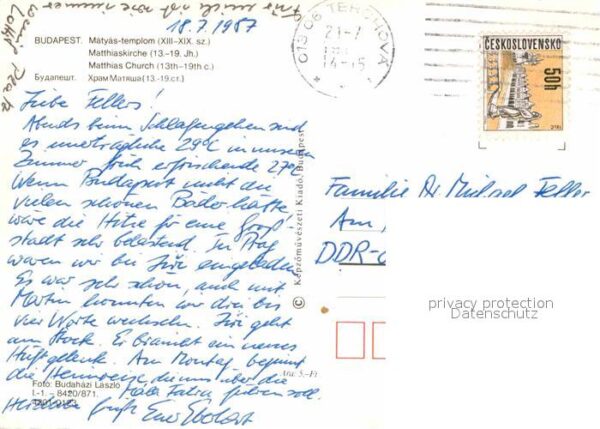 18.7.1987
BUDAPEST. Mátyás-templom (XIII–XIX. sz.)
Matthiaskirche (13.–19. Jh.)
Matthias Church (13th–19th c.)
Будапешт. Храм Матяша (13.-19.ст.)
Liebe Fellers!
Abends beim Schlafengehen sind
es unerträgliche 29°C in unserem
Zimmer früh erfrischende 27°C
Wenn Budapest nicht die
vielen schönen Bäder hätte
wäre die Hitze für eine Groß-
stadt sehr belastend. In Prag
waren wir bei Jiri eingeladen
Es war sehr schön, auch mit
Martin konnten wir drei bis
vier Worte wechseln. Jiri geht
am Stock. Er braucht ein neues
Hüftgelenk. Am Montag beginnt
die Heimreise, die uns über die
Mala Fatra führen soll.
Herzliche Grüße Euer
Foto: Budaházi László
I.-1. – 8420/871.
© Képzőművészeti Kiadó, Budapest
Ára: 5,-Ft
013 06 TERCHOVÁ
21-7
14-15
ČESKOSLOVENSKO
50h
Familie Dr Michael Feller
Am
DDR-
privacy protection
Datenschutz